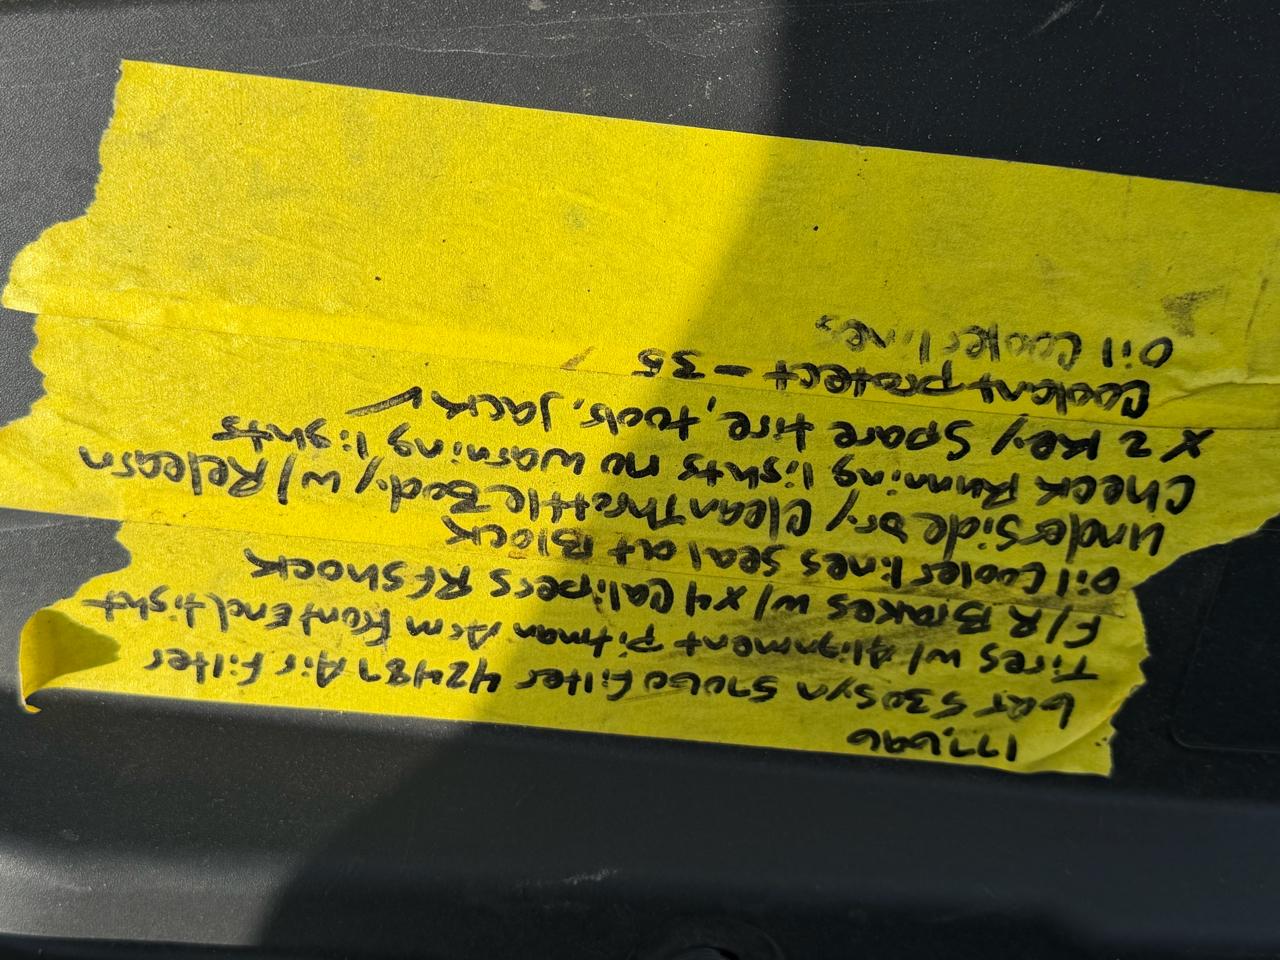 177,696
6QT 530 Syn 57060 Filter 42487 Air Filter
Tires w/ Alignment Pitman Arm Front End tight
F/R Brakes w/ x4 Calipers RF Shock
Oil Cooler lines Seal at Block
Underside Dry Clean Throttle Body w/ Relearn
Check Running lights no warning lights
x2 Key Spare tire, tools, Jack ✓
Coolant protect - 35
Oil Cooler lines